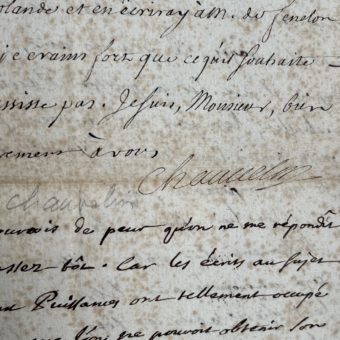 olande et en écriray à M. de fenelon
je crains fort que ce qu'il souhaite
ssisse pas. Je suis, Monsieur, bien
rement à vous
Chauvelin
Chauvelin
ouvais de peur qu'on ne me répondît
assez tôt. Car les écrits au sujet
Puissances ont tellement occupé
l'on ne pouvoit obtenir son